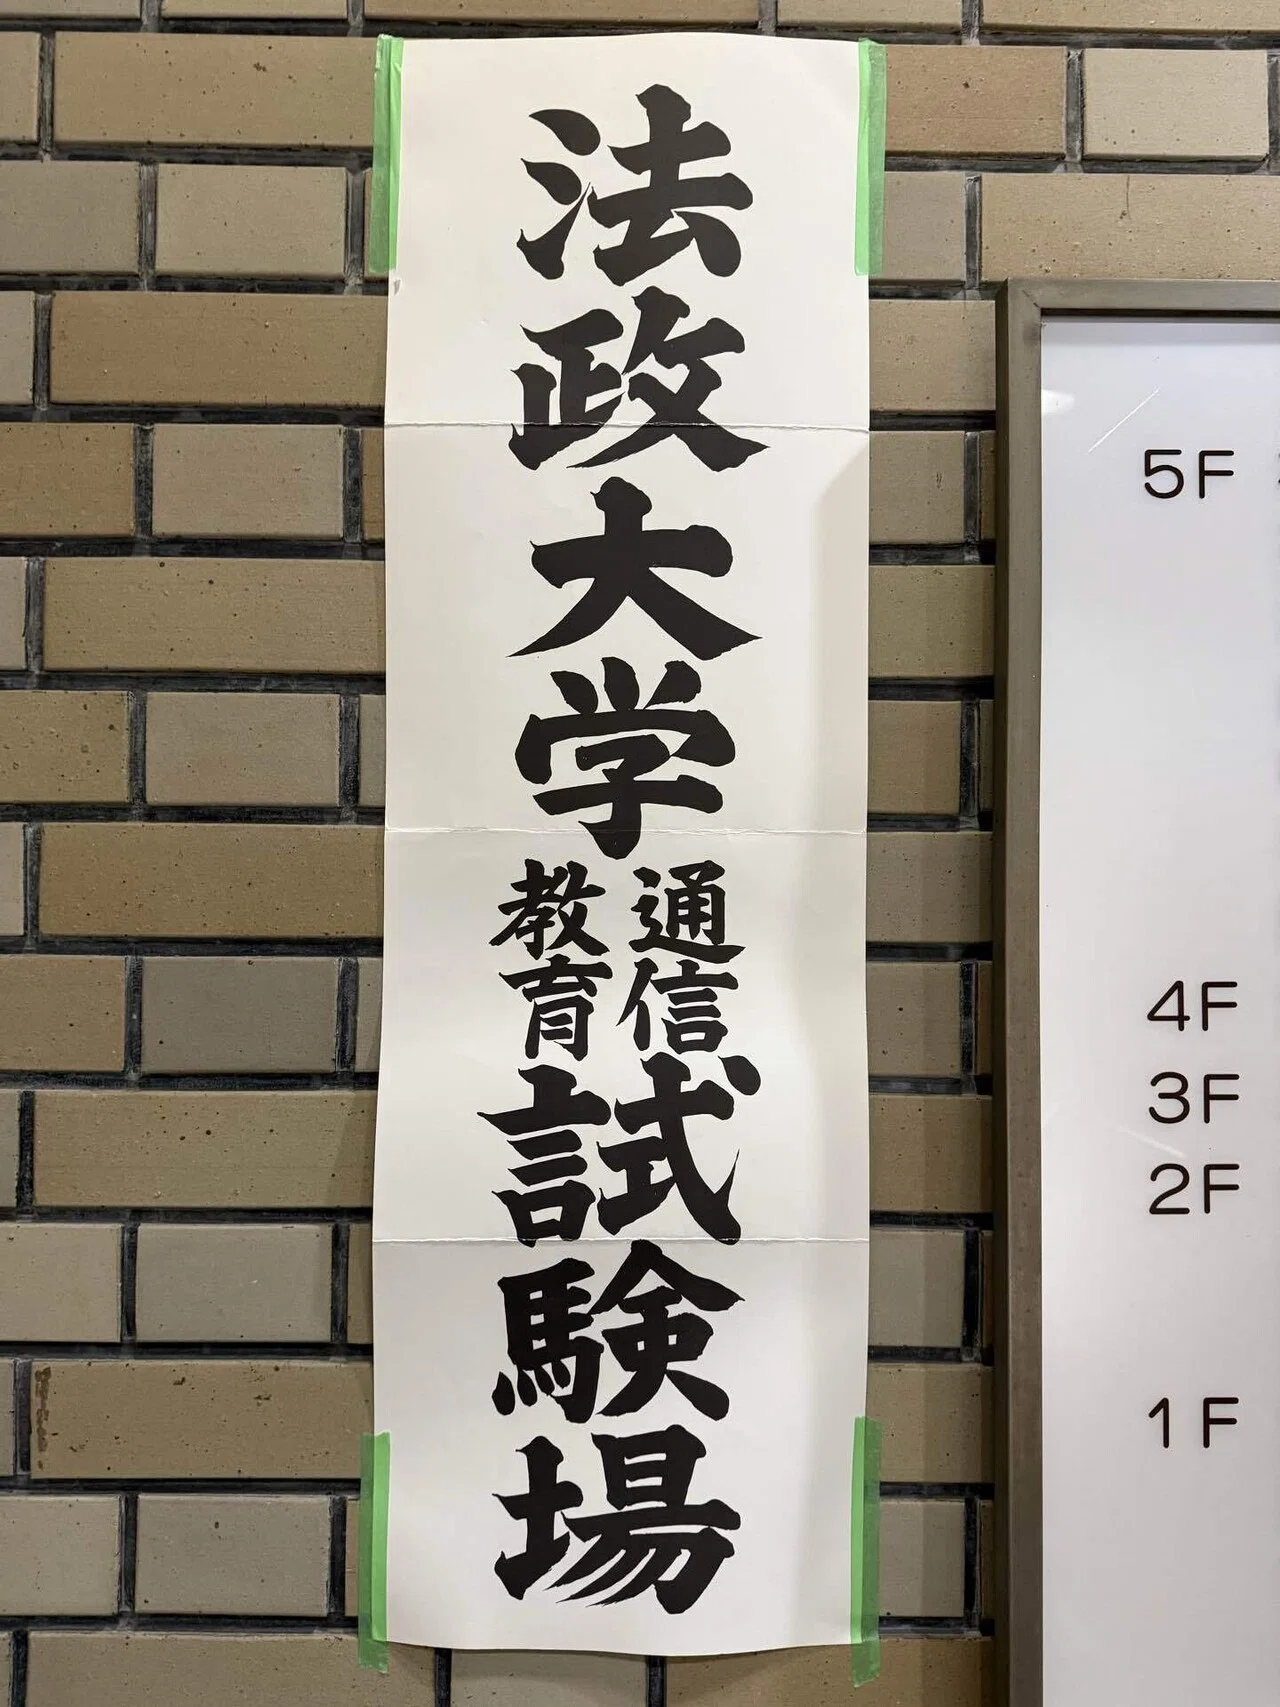 法政大学
通信
教育
試験場
5F
4F
3F
2F
1F